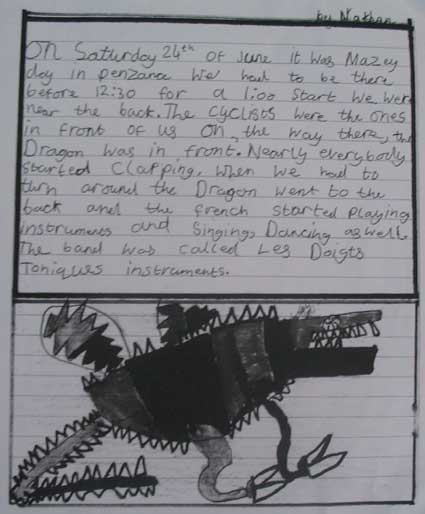 by Nathan
On Saturday 24th of June it was Mazey
day in penzance we had to be there
before 12:30 for a 1:00 start we were
near the back. The cyclists were the ones
in front of us on, the way there, the
Dragon was in front. Nearly everybody
started clapping, when we had to
turn around the Dragon went to the
back and the french started playing
instruments and singing, Dancing as well.
The band was called Les Doigts
Toniques instruments.